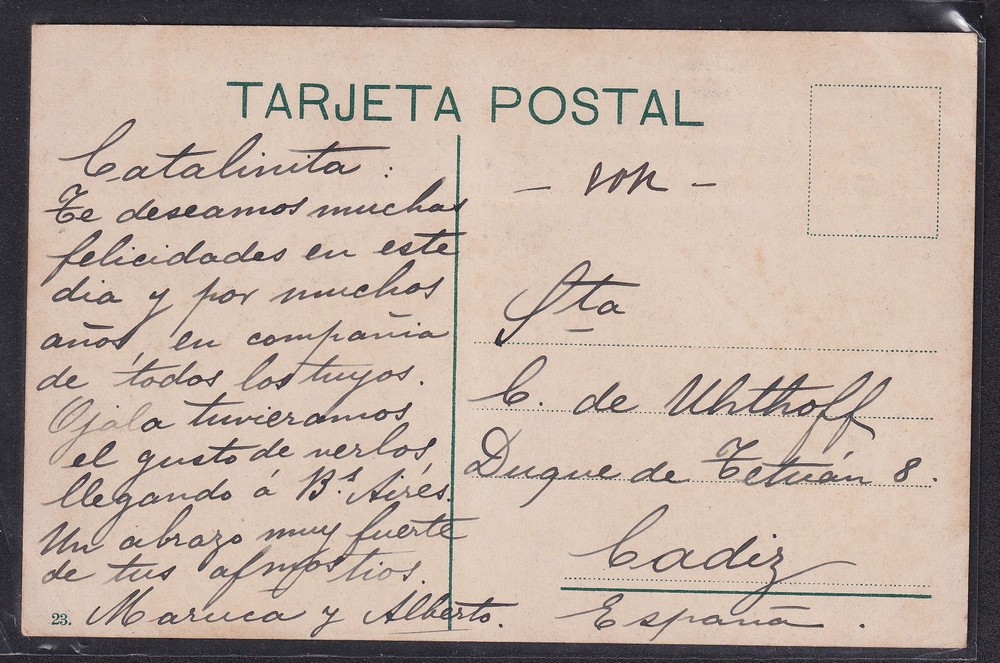 TARJETA POSTAL
Catalinita:
Te deseamos muchas
felicidades en este
dia y por muchos
años, en compañia
de todos los tuyos.
Ojala tuvieramos
el gusto de verlos
llegando á Bs. Aires.
Un abrazo muy fuerte
de tus afmos tios.
Maruca y Alberto.
23.
Sta
C. de Uhthoff
Duque de Tetuán 8.
Cadiz
España.